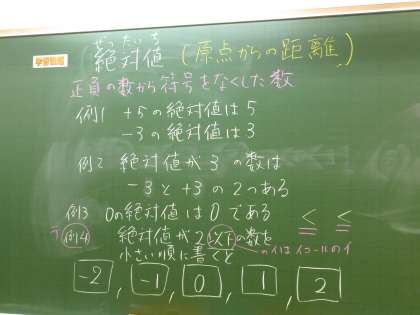 ぜったいち
絶対値 (原点からの距離)
正負の数から符号をなくした数
例1 +5の絶対値は5
-3の絶対値は3
例2 絶対値が3の数は
-3と+3の2つある
例3 0の絶対値は0である ≦ ≦
例4 絶対値が2以下の数を
小さい順に書くと のイはイコールのイ
-2, -1, 0, 1, 2